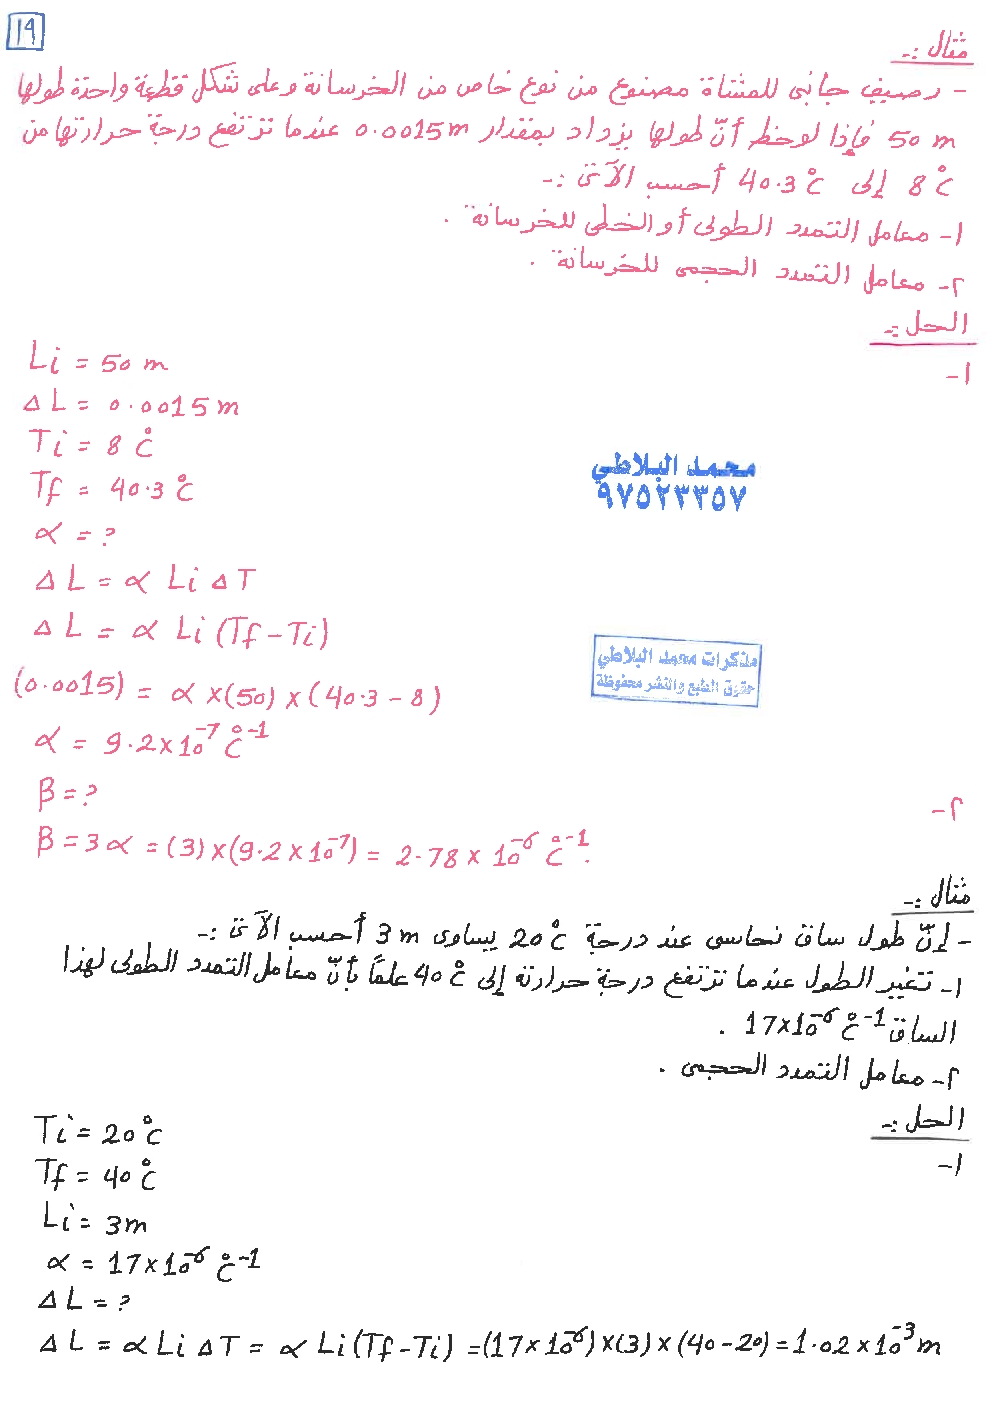 ١٩
مثال :-
- رصيف جانبى للمشاة مصنوع من نوع خاص من الخرسانة وعلى شكل قطعة واحدة طولها
50 m فإذا لوحظ أنّ طولها يزداد بمقدار 0.0015 m عندما ترتفع درجة حرارتها من
8 °C إلى 40.3 °C أحسب الآتى :-
١- معامل التمدد الطولى أو الخطى للخرسانة .
٢- معامل التمدد الحجمى للخرسانة .
الحل :-
١-
Li = 50 m
Δ L = 0.0015 m
Ti = 8 °C
Tf = 40.3 °C
α = ?
Δ L = α Li Δ T
Δ L = α Li (Tf - Ti)
(0.0015) = α x (50) x (40.3 - 8)
α = 9.2 x 10⁻⁷ °C⁻¹
محمد البلاطي
٩٧٥٢٣٣٥٧
مذكرات محمد البلاطي
حقوق الطبع والنشر محفوظة
٢-
β = ?
β = 3 α = (3) x (9.2 x 10⁻⁷) = 2.78 x 10⁻⁶ °C⁻¹.
مثال :-
- إنّ طول ساق نحاسى عند درجة 20 °C يساوى 3 m أحسب الآتى :-
١- تغير الطول عندما ترتفع درجة حرارته إلى 40 °C علماً بأنّ معامل التمدد الطولى لهذا
الساق 17x10⁻⁶ °C⁻¹ .
٢- معامل التمدد الحجمى .
الحل :-
١-
Ti = 20 °C
Tf = 40 °C
Li = 3 m
α = 17 x 10⁻⁶ °C⁻¹
Δ L = ?
Δ L = α Li Δ T = α Li (Tf - Ti) = (17 x 10⁻⁶) x (3) x (40 - 20) = 1.02 x 10⁻³ m